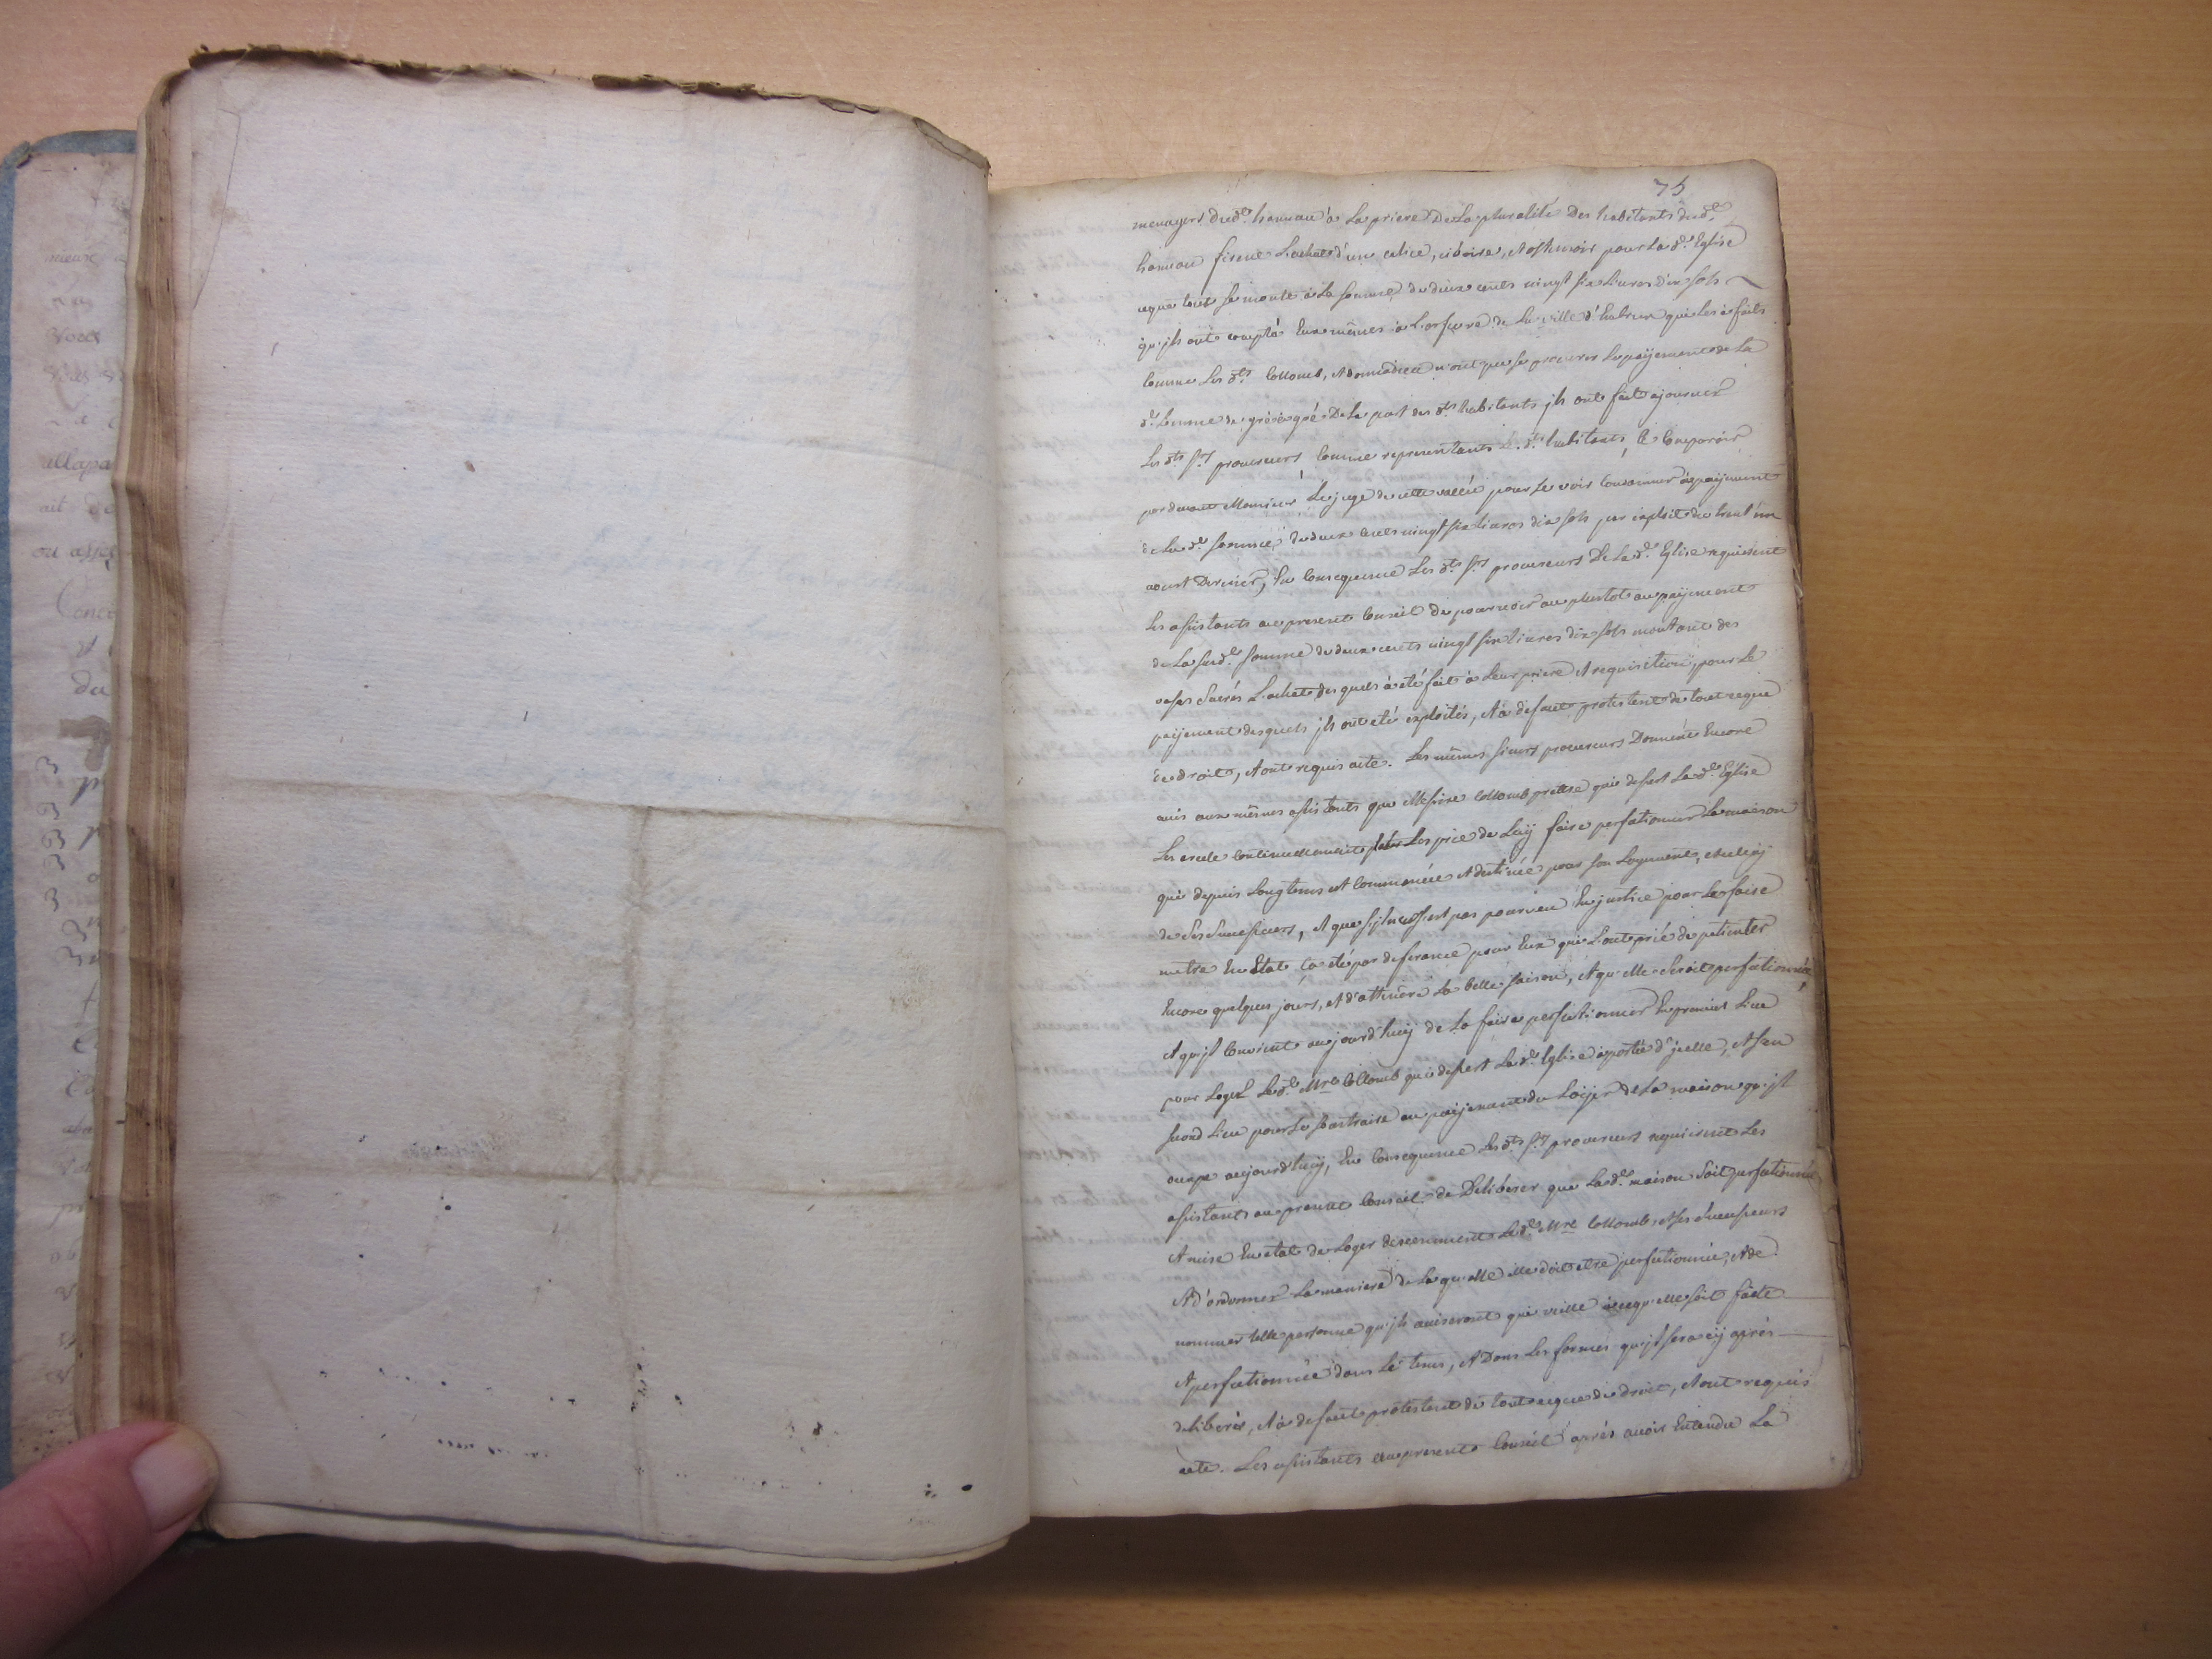 75
menagers dud.t hameau à la priere de la pluralité des habitants dud.t
hameau firent l'achat d'un calice, ciboire, et ostensoir pour la d.e Eglise
ce que tout se monte à la somme de deux cents vingt six livres dix sols
qu'jls ont compté eux mêmes à l'orfevre de la ville d'Embrun qui les à faits
comme les d.ts Collomb, et donnadieu n'ont peu se procurer le paÿement de la
d.e somme de gré à gré de la part des d.ts habitants jls ont fait ajourner
les d.ts s.rs procureurs comme representants les d.ts habitants, à comparoir
par devant Monsieur le juge de cette vallée pour se voir condamner à paÿement
de la d.e somme de deux cents vingt six livres dix sols par exploit du trent'un
aoust dernier, En consequence les d.ts s.rs procureurs de la d.e Eglise requierent
les assistants au present conseil de pourvoir au plustot au paÿement
de la susd.e somme de deux cents vingt six livres dix sols montant des
vases sacrés l'achat des quels à eté fait à leur priere et requisition, pour le
paÿement desquels jls ont eté exploités, et à defaut protestent de tout ce que
de droit, et ont requis acte. Les mêmes sieurs procureurs donnent encore
avis aux mêmes assistants que Messire Collomb prêtre qui desert la d.e Eglise
les excede continuellement les prie de luÿ faire perfectionner la maison
qui depuis longtems est commencée et destinée pour son logement, et celuÿ
de ses successeurs, et que s'jl ne s'est pas pourveu en justice pour la faire
metre en Etat ça eté par deferance pour eux qui l'ont prié de patienter
encore quelques jours, et d'attendre la belle saison, et qu'elle seroit perfectionnée,
et qu'jl convient aujourd'huÿ de la faire perfectionner en premier lieu
pour loger led.t M.re Collomb qui desert la d.e Eglise à portée d'jcelle, et en
second lieu pour se soustraire au paÿement du loÿer de la maison qu'jl
occupe aujourd'huÿ, En consequence les d.ts s.rs procureurs requierent les
assistants au present conseil de deliberer que lad.e maison soit perfectionnée
et mise en etat de loger decemment led.t M.re Collomb et ses successeurs
et d'ordonner la maniere de laquelle elle doit etre perfectionnée, et de
nommer telle personne qu'jls aviseront qui veille à ce qu'elle soit faite
et perfectionnée dans le tems, et dans les formes qu'jl sera cÿ après
deliberé, et à defaut protestent de tout ce que de droit, et ont requis
acte. Les assistants au present conseil après avoir entendu la